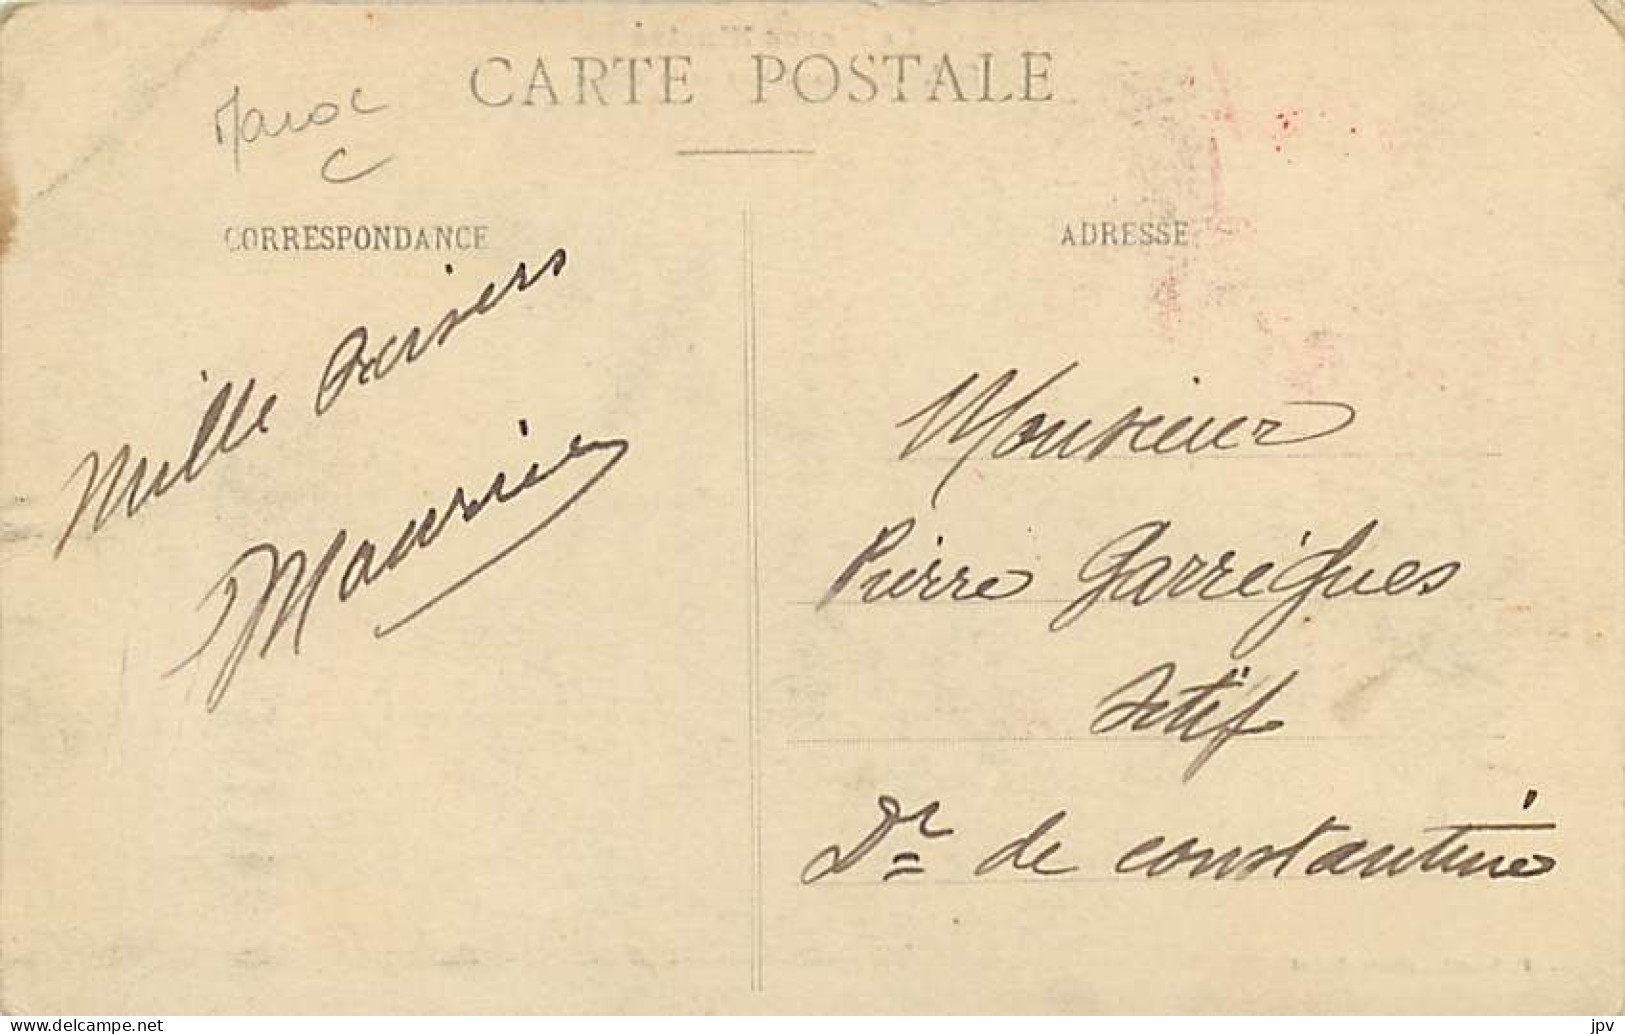 CARTE POSTALE
Maroc
C
CORRESPONDANCE
Mille baisers
Maurice
ADRESSE
Monsieur
Pierre Garrigues
Sétif
Dr de constantine
www.delcampe.net
jpv